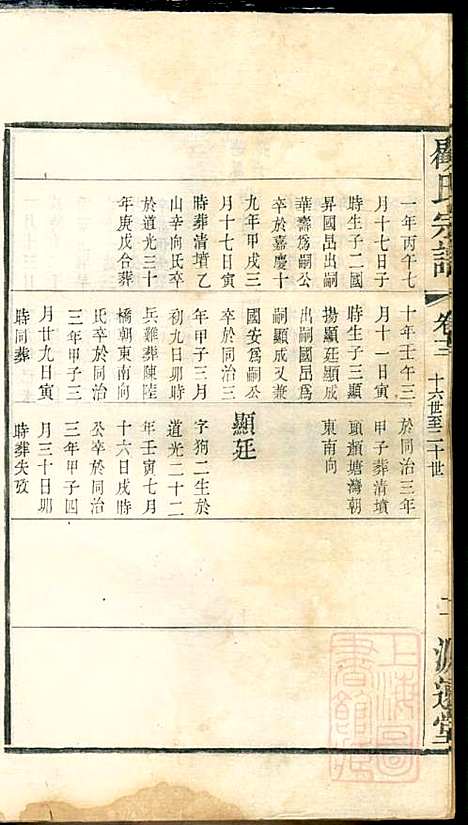 顧氏宗譜
卷十三
十六世至二十世
源遠堂
一年丙午七
月十七日子
時生子二國
昇國昂出嗣
華壽爲嗣公
卒於嘉慶十
九年甲戌三
月十七日寅
時葬清墳乙
山辛向氏卒
於道光三十
年庚戌合葬
十年壬午三
月十一日寅
時生子三顯
揚顯廷顯成
出嗣國昂爲
嗣顯成又兼
國安爲嗣公
卒於同治三
年甲子三月
初九日卯時
兵難葬陳陸
橋朝東南向
氏卒於同治
三年甲子三
月廿九日寅
時同葬
於同治三年
甲子葬清墳
頭瀕塘灣朝
東南向
顯廷
字狗二生於
道光二十二
年壬寅七月
十六日戌時
公卒於同治
三年甲子四
月三十日卯
時葬失攷
上海圖書館藏